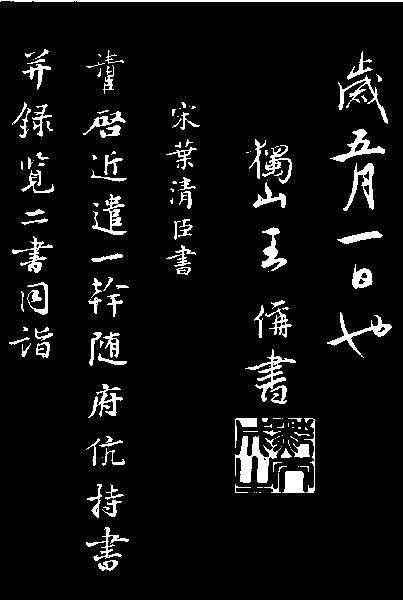 歲五月一日也
獨山王
書
宋葉清臣書
啓近遣一幹随府伉持書
并録覧二書同詣